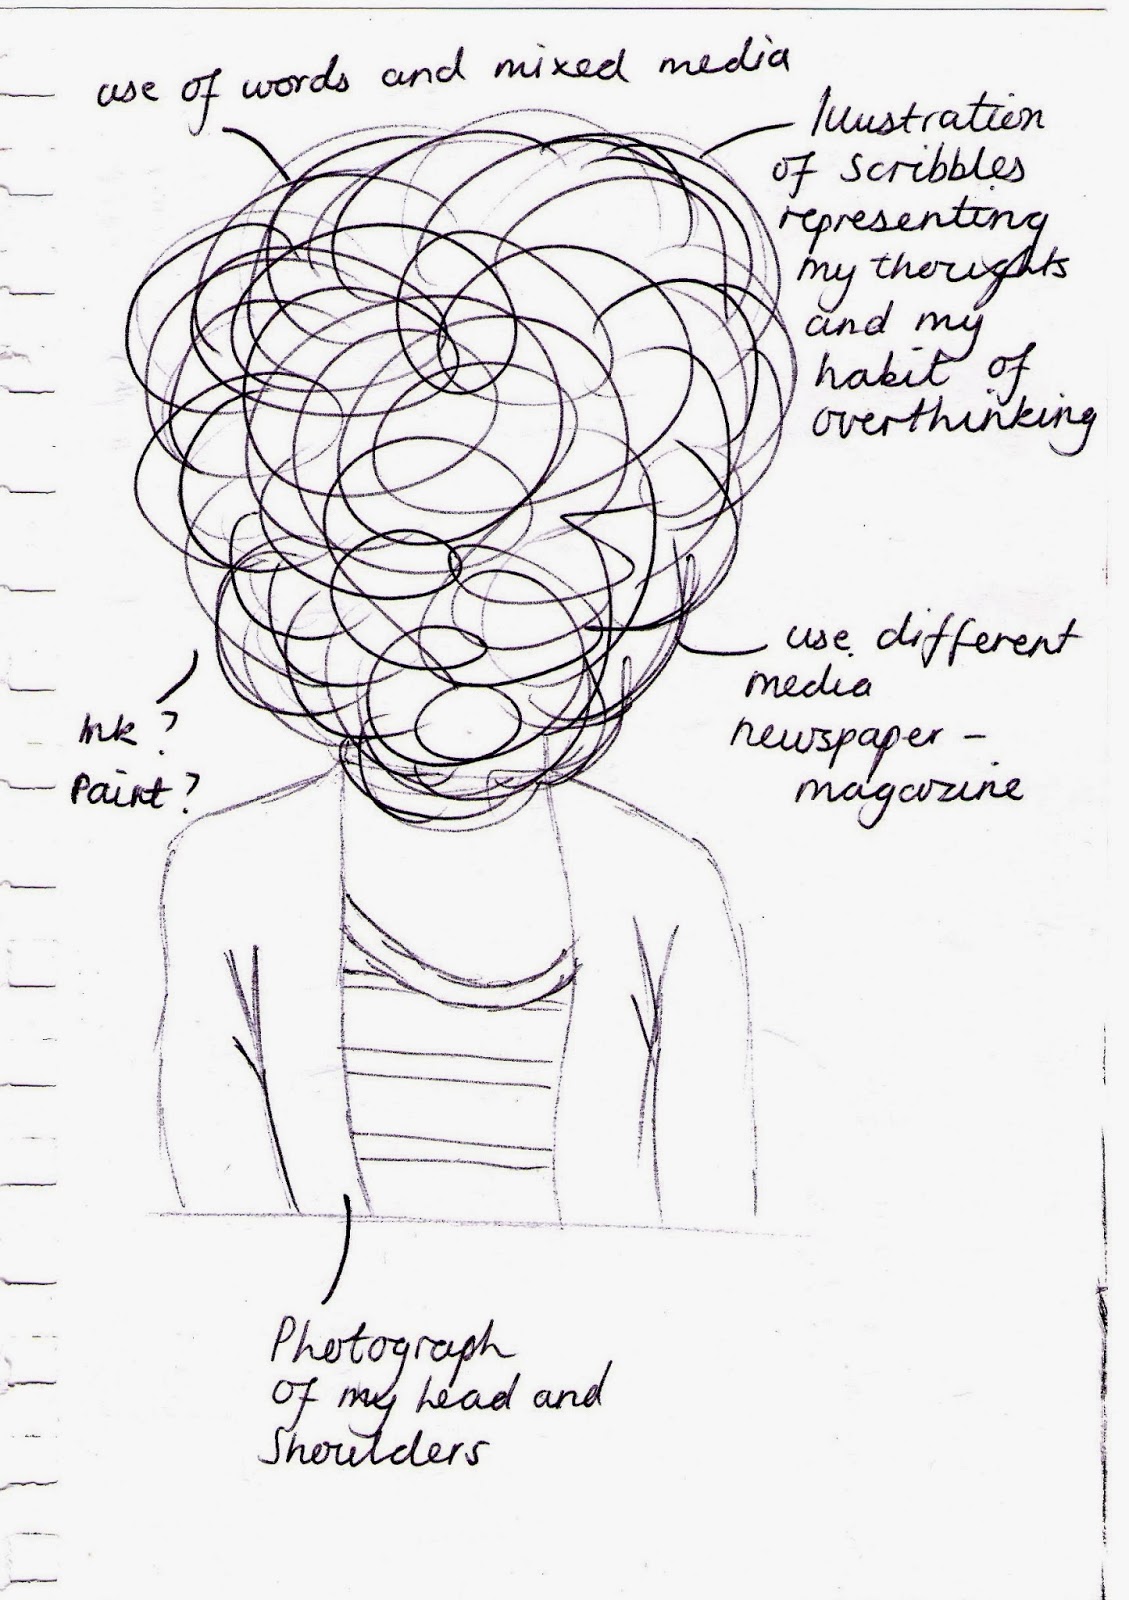 use of words and mixed media
Illustration
of scribbles
representing
my thoughts
and my
habit of
overthinking
use different
media
newspaper -
magazine
Ink?
Paint?
Photograph
of my head and
Shoulders